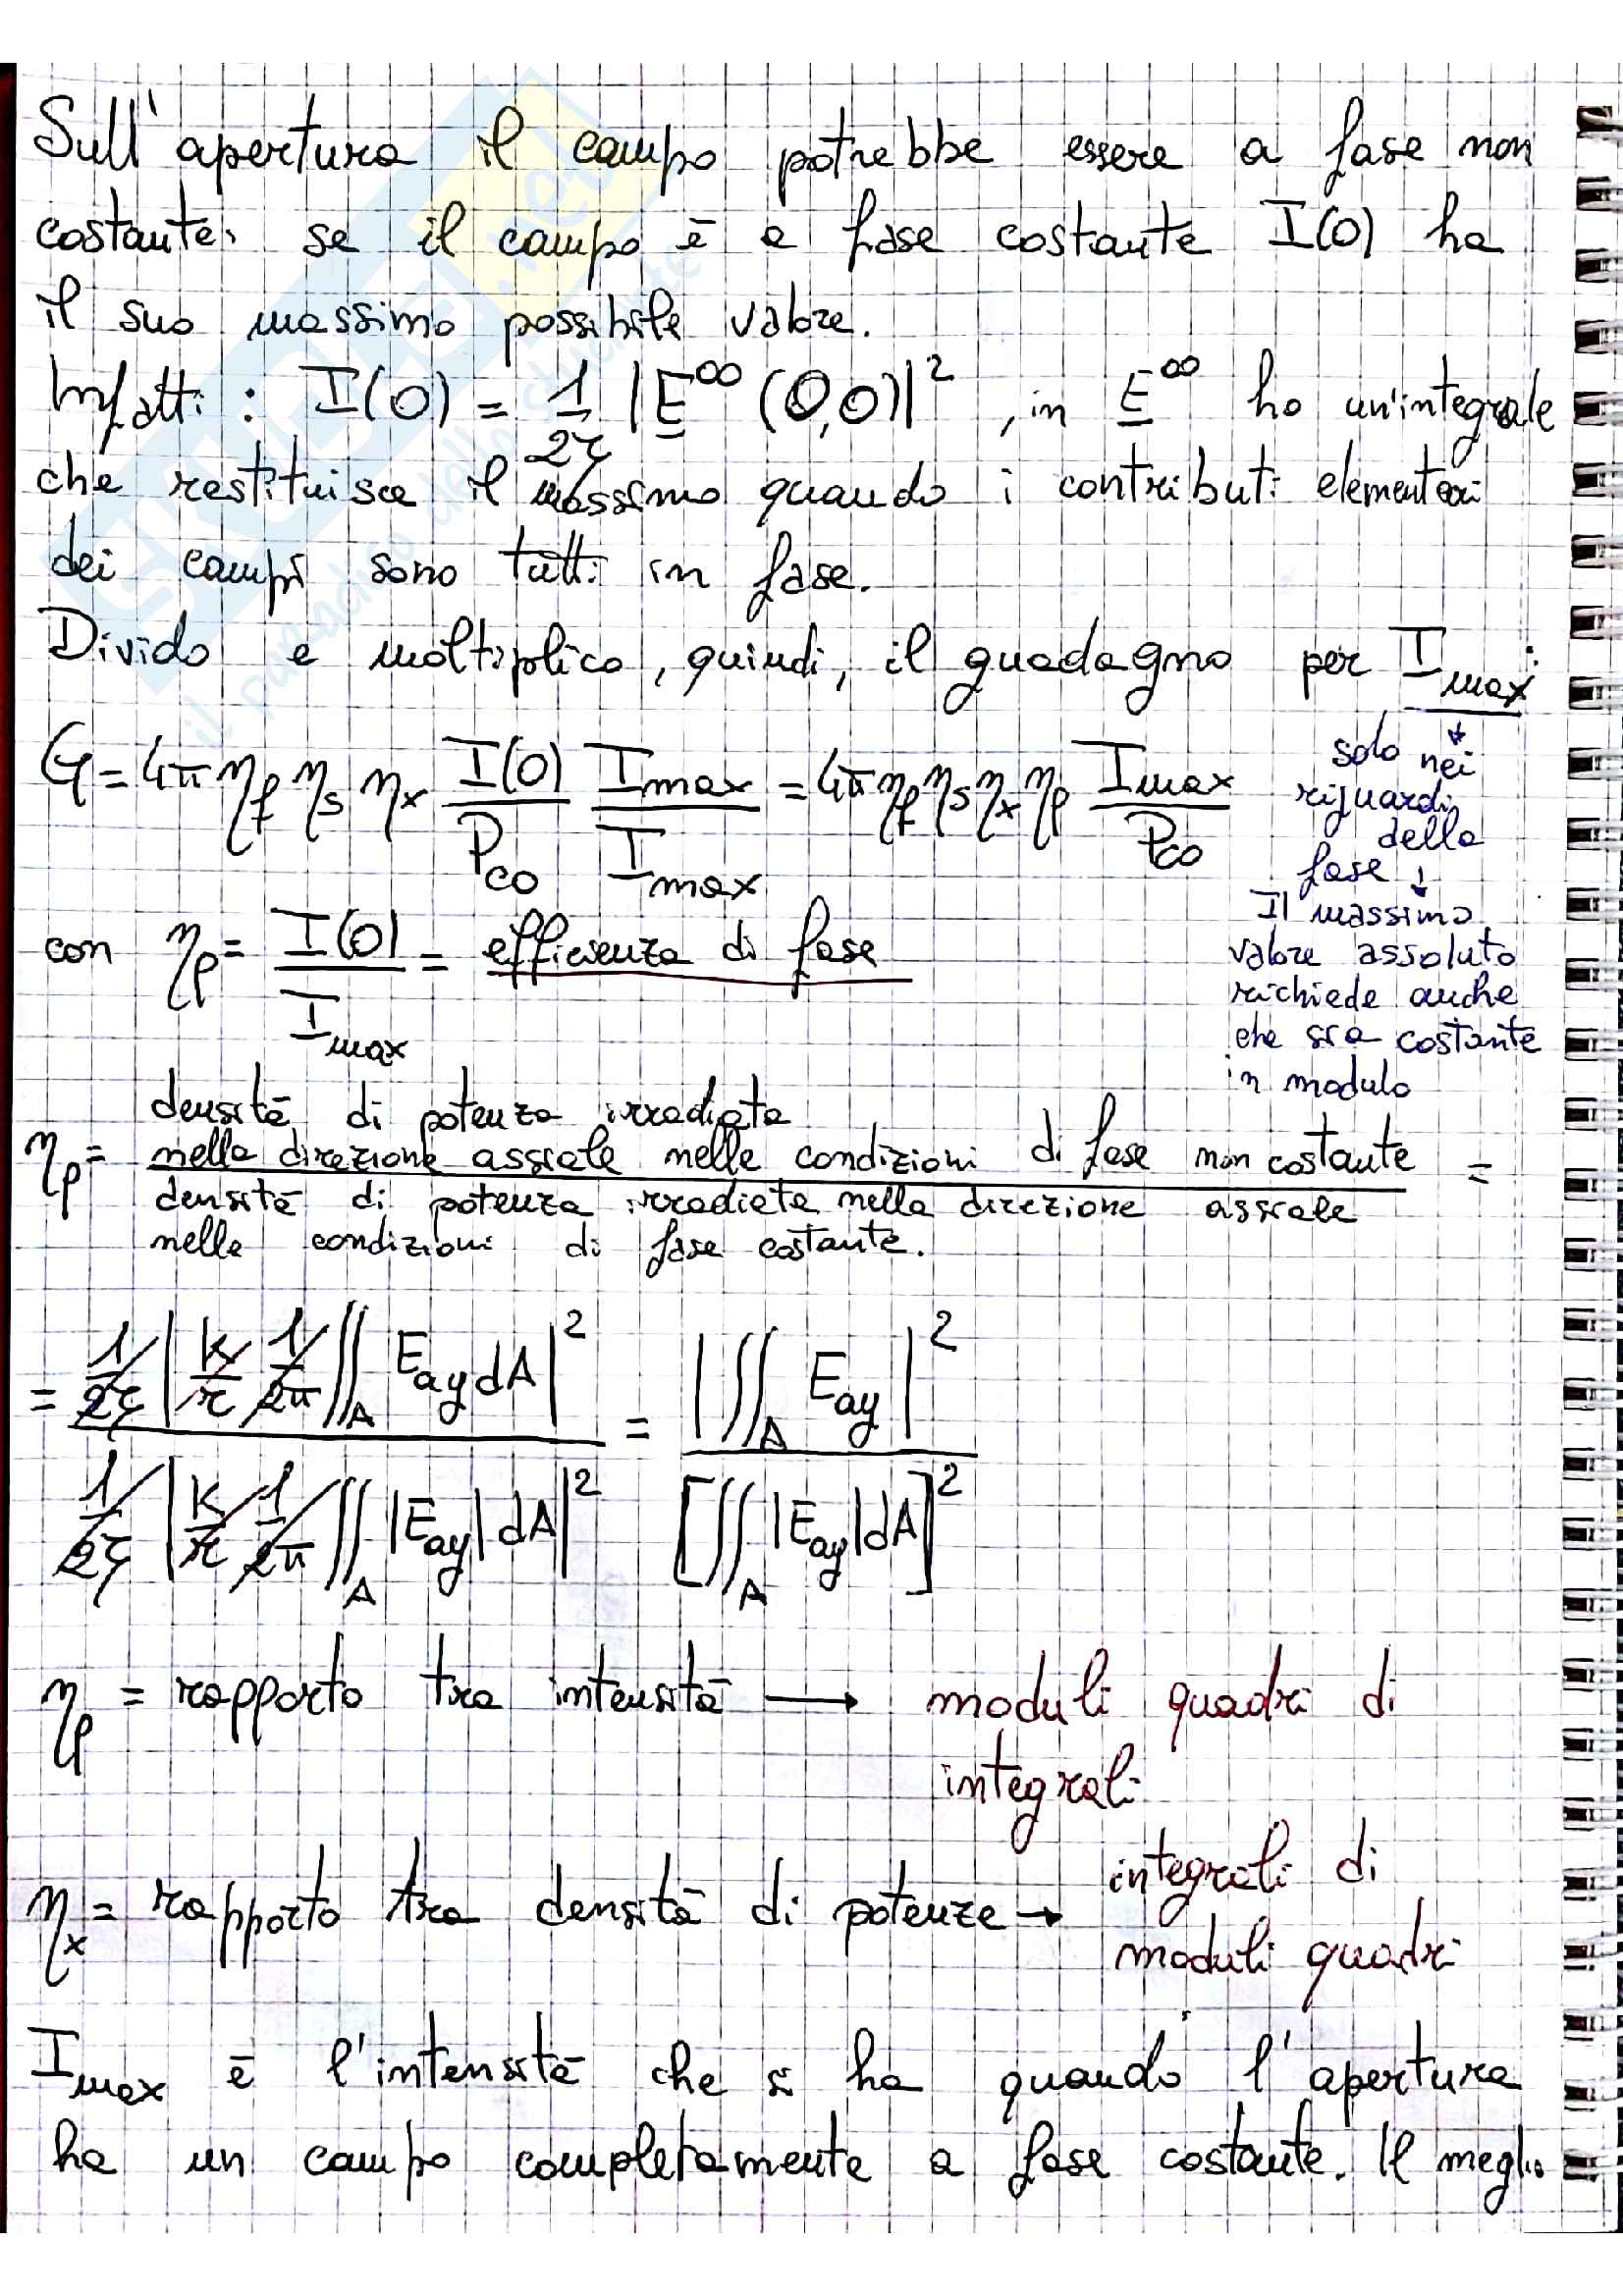 Sull'apertura il campo potrebbe essere a fase non
costante: se il campo è a fase costante I(0) ha
il suo massimo possibile valore.
Infatti: I(0) = 1/2ζ |E^∞ (0,0)|², in E^∞ ho un'integrale
che restituisce il massimo quando i contributi elementari
dei campi sono tutti in fase.
Divido e moltiplico, quindi, il guadagno per Imax:
G = 4π ηf ηs ηx I(0)/Pco Imax/Imax = 4π ηf ηs ηx ηp Imax/Pco
↓
solo nei
riguardi
della
fase ↓
Il massimo
valore assoluto
richiede anche
che sia costante
in modulo
con ηp = I(0)/Imax = efficienza di fase
ηp = densità di potenza irradiata
nella direzione assiale nelle condizioni di fase non costante =
densità di potenza irradiata nella direzione assiale
nelle condizioni di fase costante.
= 1/2ζ |k/r 1/2π ∬A Eay dA|² / 1/2ζ |k/r 1/2π ∬A |Eay| dA|² = |∬A Eay|² / [∬A |Eay| dA]²
ηp = rapporto tra intensità → moduli quadri di
integrali
ηx = rapporto tra densità di potenze → integrali di
moduli quadri
Imax è l'intensità che si ha quando l'apertura
ha un campo completamente a fase costante. Il meglio
SKUOLA.net
il paradiso dello studente